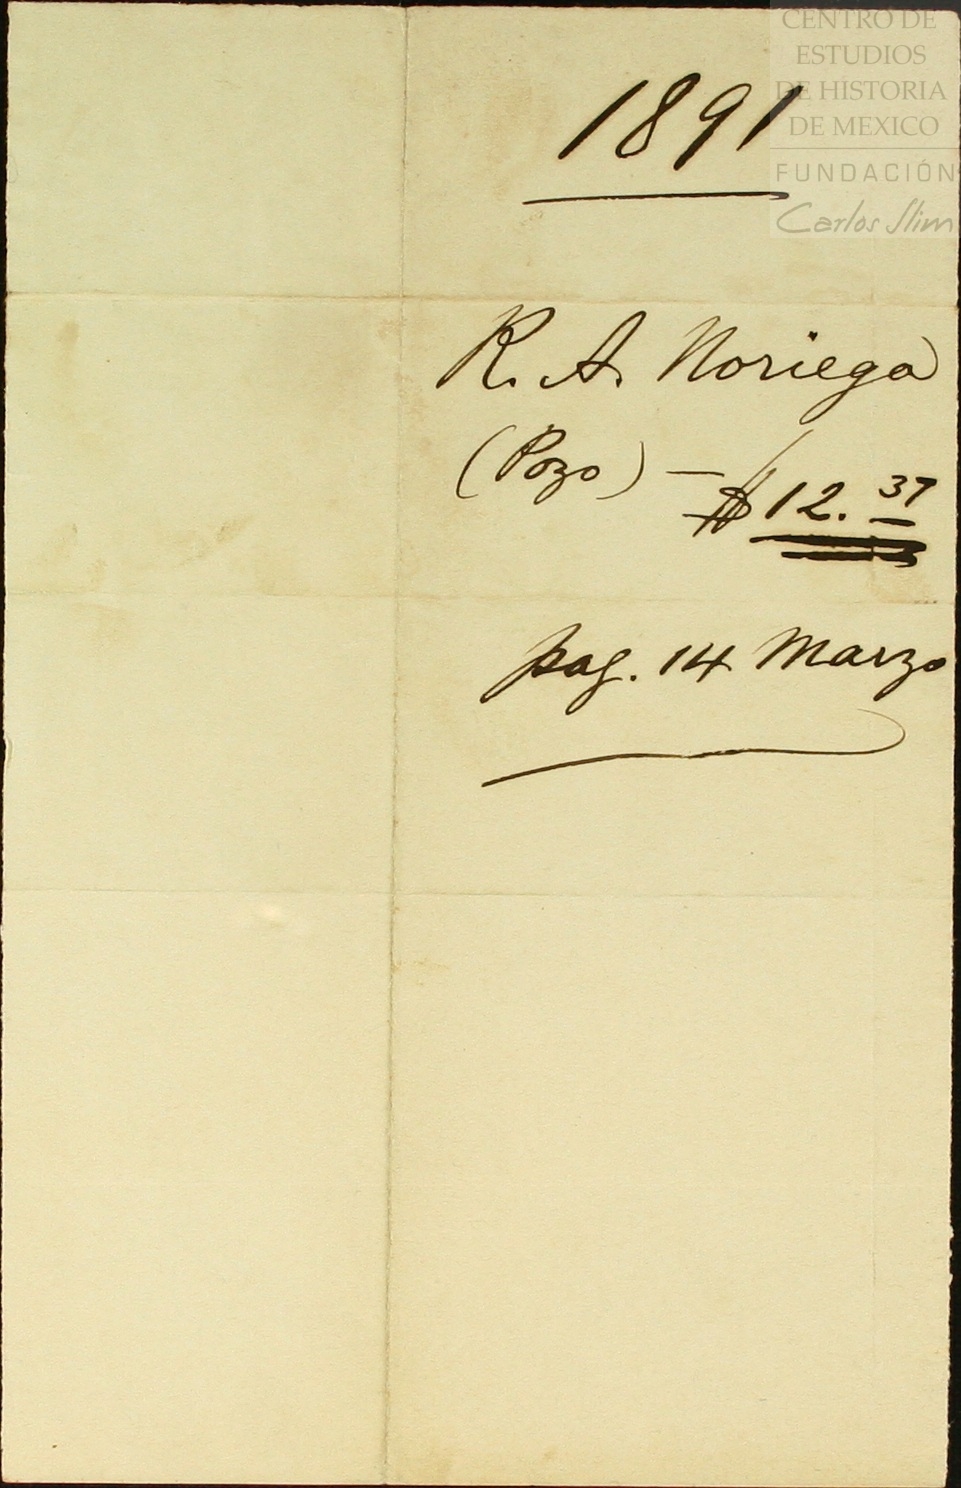 CENTRO DE
ESTUDIOS
DE HISTORIA
DE MEXICO
FUNDACIÓN
Carlos Slim
1891
R. A. Noriega
(Pozo) —
$12. 37
pag. 14 Marzo